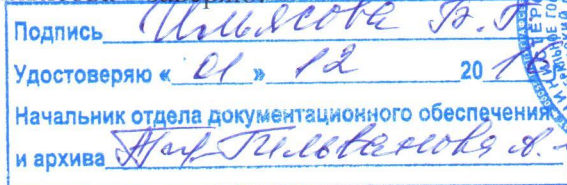 Подпись Ильясова В.Г
Удостоверяю « 01 » 12 20 13
Начальник отдела документационного обеспечения
и архива Гильванова А.